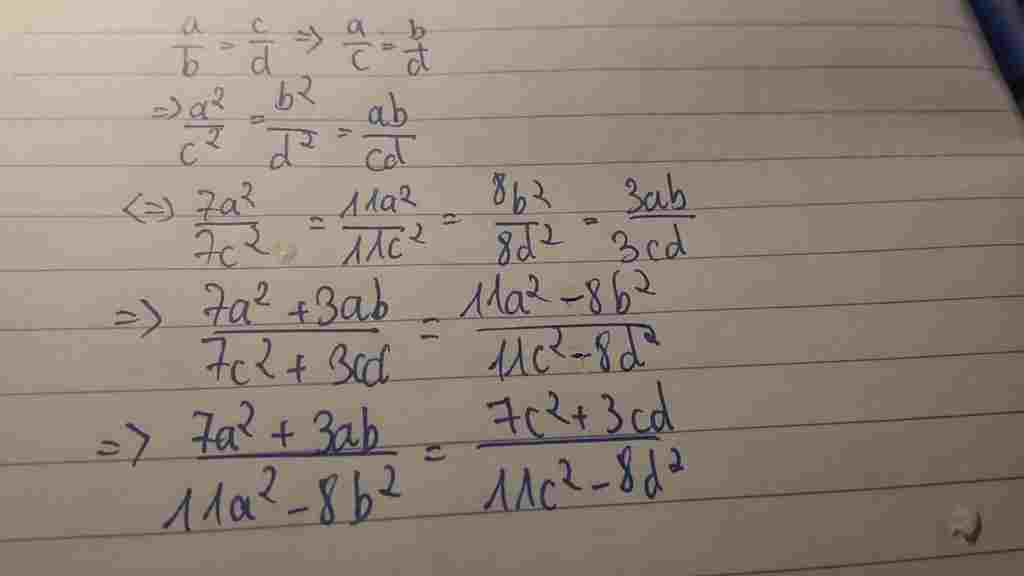 a/b = c/d => a/c = b/d
=> a²/c² = b²/d² = ab/cd
<=> 7a²/7c² = 11a²/11c² = 8b²/8d² = 3ab/3cd
=> (7a² + 3ab)/(7c² + 3cd) = (11a² - 8b²)/(11c² - 8d²)
=> (7a² + 3ab)/(11a² - 8b²) = (7c² + 3cd)/(11c² - 8d²)